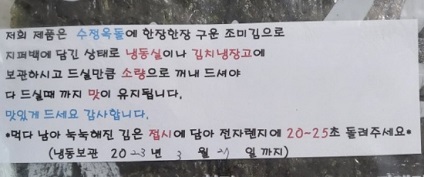 저희 제품은 수정옥돌에 한장한장 구운 조미김으로
지퍼백에 담긴 상태로 냉동실이나 김치냉장고에
보관하시고 드실만큼 소량으로 꺼내 드셔야
다 드실때 까지 맛이 유지됩니다.
맛있게 드세요 감사합니다.
•먹다 남아 눅눅해진 김은 접시에 담아 전자렌지에 20-25초 돌려주세요•
(냉동보관 2023년 3 월 일 까지)